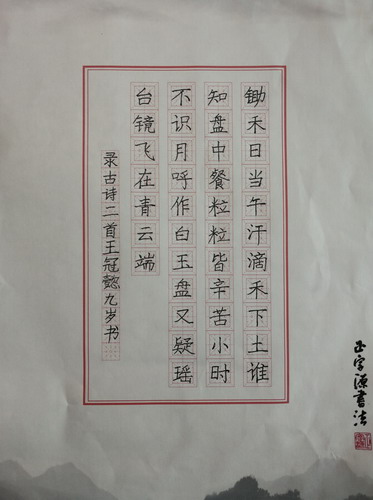 锄禾日当午汗滴禾下土谁
知盘中餐粒粒皆辛苦小时
不识月呼作白玉盘又疑瑶
台镜飞在青云端
录古诗二首王冠懿九岁书
正字源书法